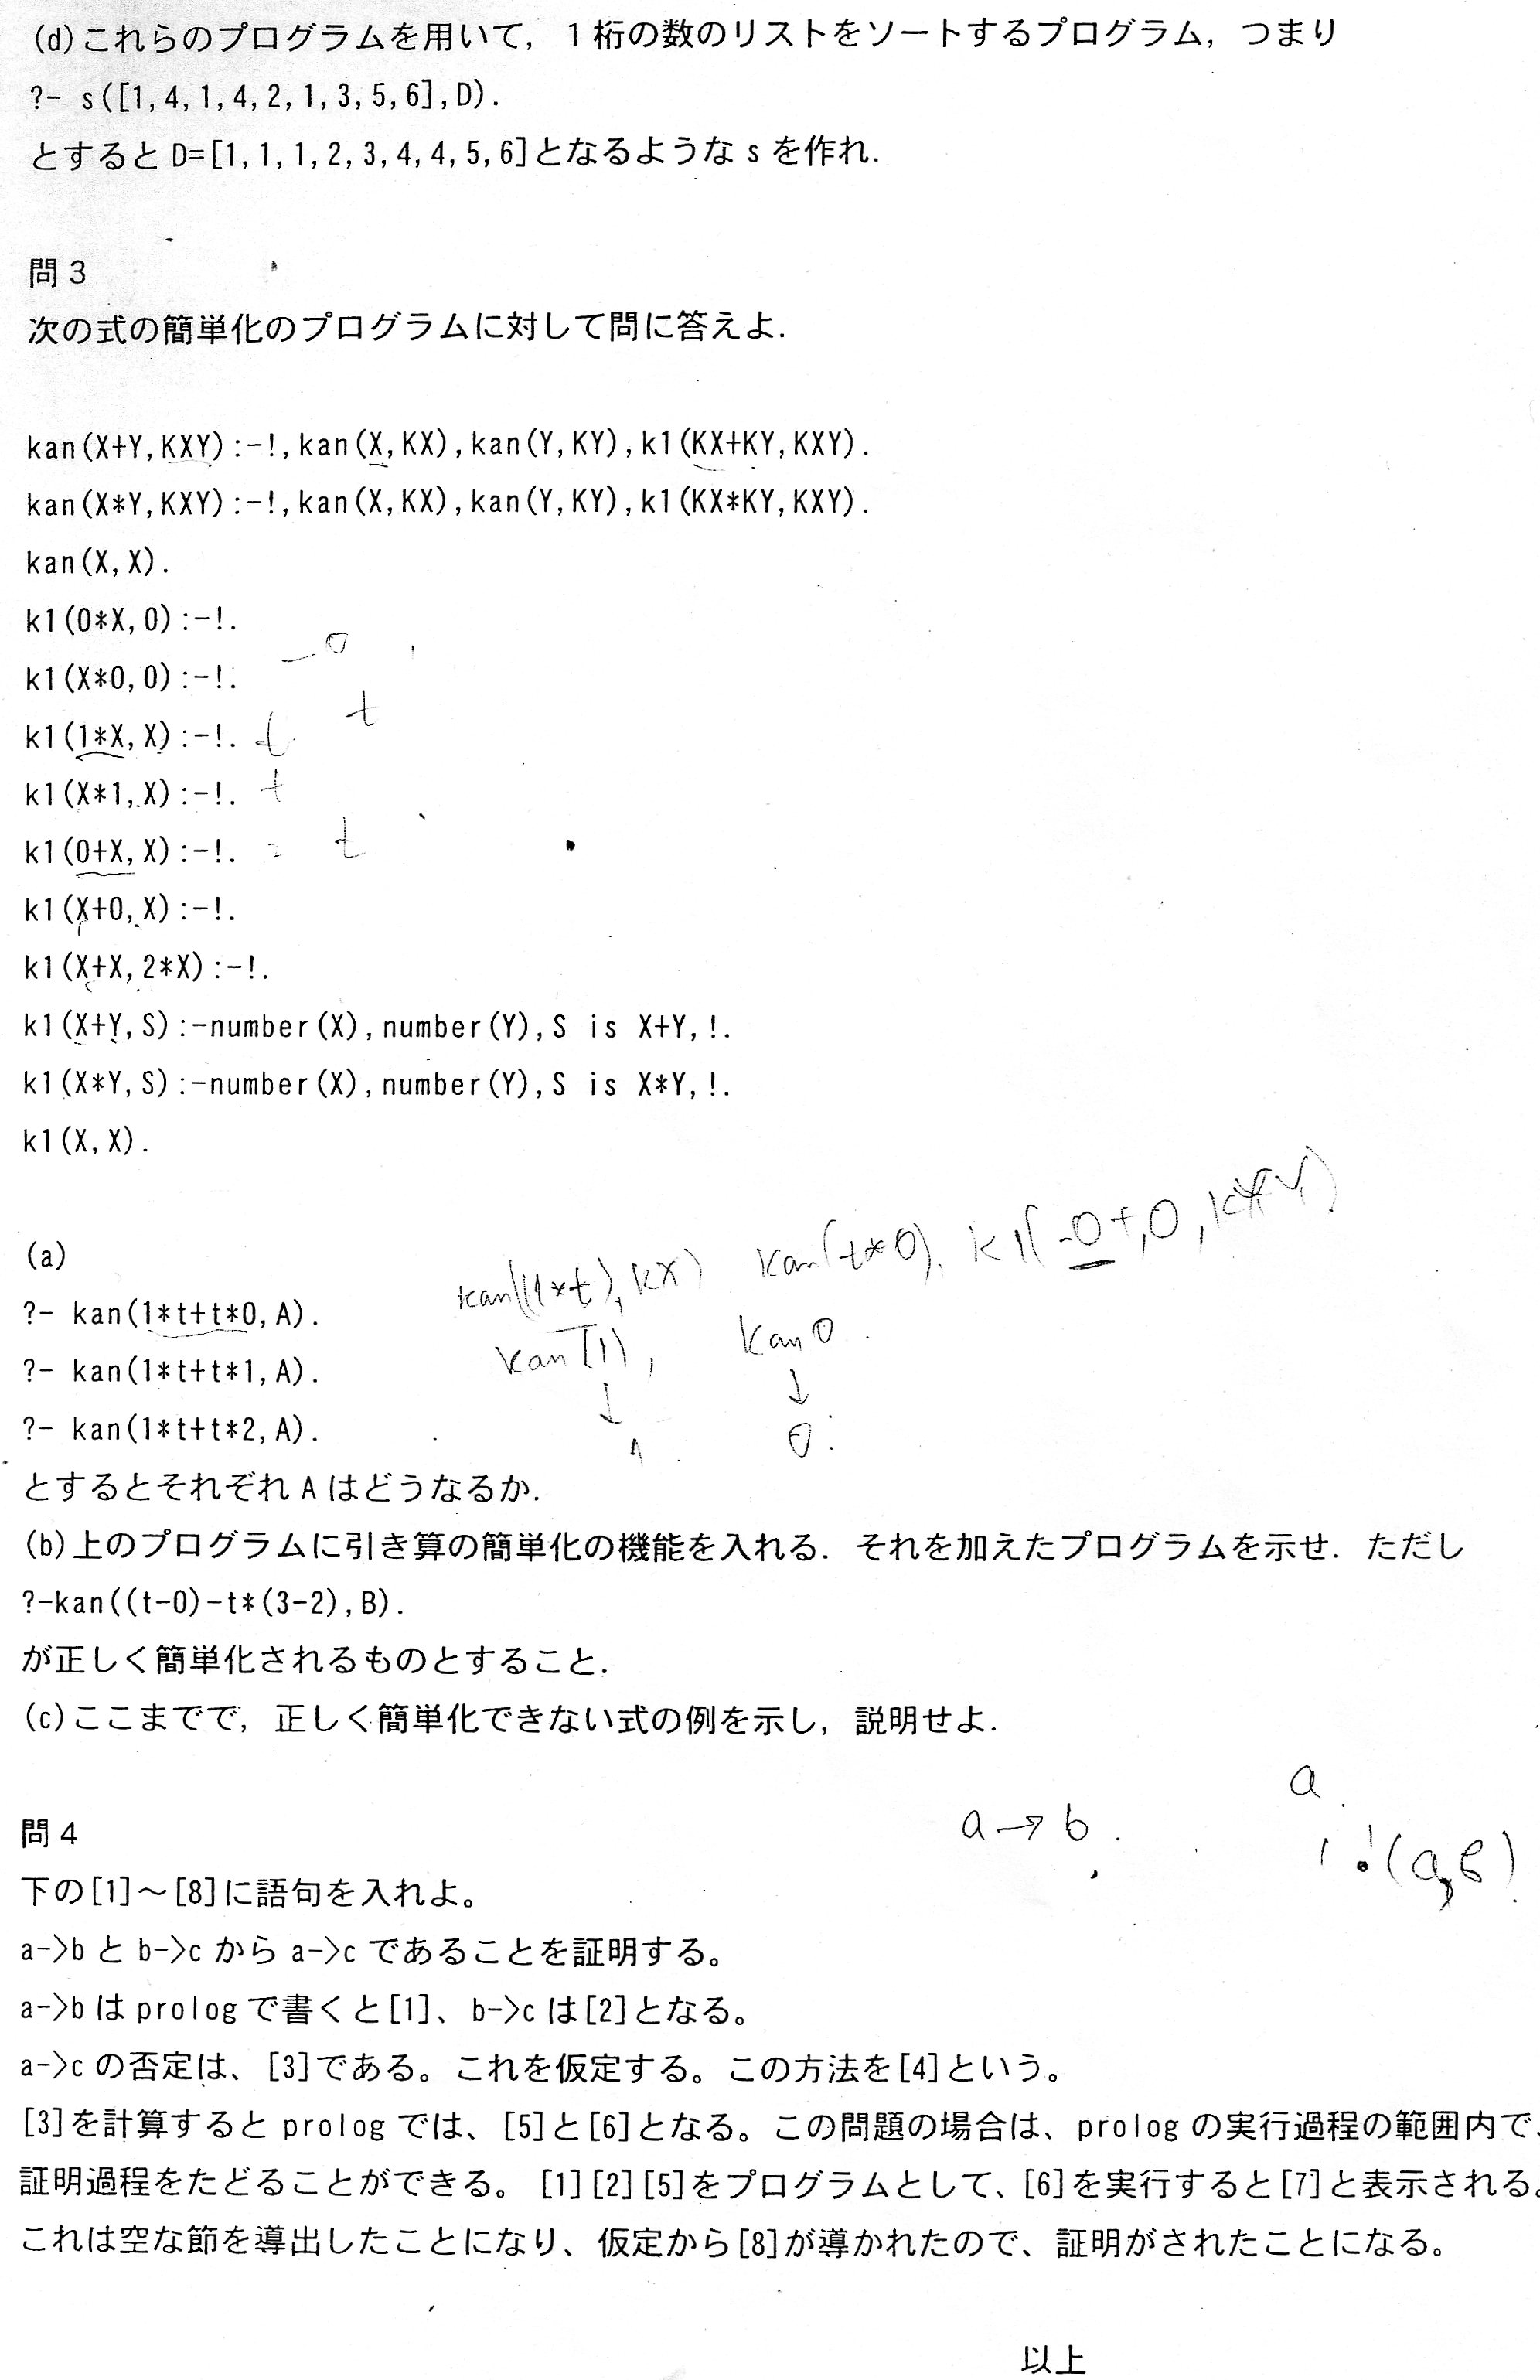 (d)これらのプログラムを用いて，１桁の数のリストをソートするプログラム，つまり
?- s([1,4,1,4,2,1,3,5,6],D).
とすると D=[1,1,1,2,3,4,4,5,6]となるような s を作れ.
問３
次の式の簡単化のプログラムに対して問に答えよ.
kan(X+Y,KXY):-!,kan(X,KX),kan(Y,KY),k1(KX+KY,KXY).
kan(X*Y,KXY):-!,kan(X,KX),kan(Y,KY),k1(KX*KY,KXY).
kan(X,X).
k1(0*X,0):-!.
k1(X*0,0):-!.
t
k1(1*X,X):-!.
k1(X*1,X):-!. t
k1(0+X,X):-!. t
k1(X+0,X):-!.
k1(X+X,2*X):-!.
k1(X+Y,S):-number(X),number(Y),S is X+Y,!.
k1(X*Y,S):-number(X),number(Y),S is X*Y,!.
k1(X,X).
(a)
kan((1*t),KX) kan(t*0),
?- kan(1*t+t*0,A).
kan 0
?- kan(1*t+t*1,A).
↓ ↓
?- kan(1*t+t*2,A).
0
とするとそれぞれ A はどうなるか.
(b)上のプログラムに引き算の簡単化の機能を入れる．それを加えたプログラムを示せ．ただし
?-kan((t-0)-t*(3-2),B).
が正しく簡単化されるものとすること.
(c)ここまでで，正しく簡単化できない式の例を示し，説明せよ.
a
a→b.
問４
(a,b)
下の[1]～[8]に語句を入れよ。
a->b と b->c から a->c であることを証明する。
a->b は prolog で書くと[1]、b->c は[2]となる。
a->c の否定は、[3]である。これを仮定する。この方法を[4]という。
[3]を計算すると prolog では、[5]と[6]となる。この問題の場合は、prolog の実行過程の範囲内で、
証明過程をたどることができる。[1][2][5]をプログラムとして、[6]を実行すると[7]と表示される。
これは空な節を導出したことになり、仮定から[8]が導かれたので、証明がされたことになる。
以上